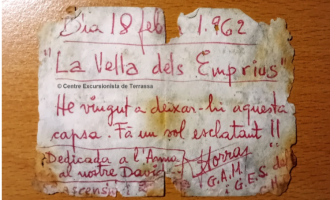 Dia 18 feb 1.962
"La Vella dels Emprius"
© Centre Excursionista de Terrassa
He vingut a deixar-hi aquesta
capsa. Fa un sol esclatant !!
Dedicada a l'Anna Torras
al nostre David G.A.M. del
ascensió G.E.S.